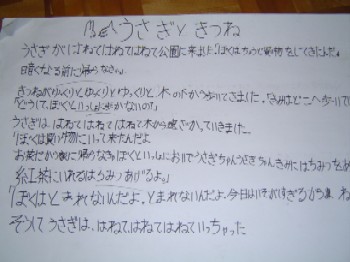 うさぎときつね
うさぎがはねてはねてはねて公園に来ました。「ぼくはちょうど買物をしてきたんだ。
暗くなる前に帰らなきゃ。
きつねがゆっくりとゆっくりとゆっくりと木の下から歩いてきました。「きみはどこへ歩いて
「どうして、ぼくといっしょに行かないの?」
うさぎは、はねてはねてはねて木から遠ざかっていきました。
「ぼくは買い物にいって来たんだよ
お茶だから前に帰らなきゃ」「ぼくといっしょにおいでうさぎちゃんうさぎちゃんきみにはちみつをあ
紅茶にいれるはちみつあげるよ。」
「ぼくはとまれないんだよ、とまれないんだよ、今日はいそがしすぎるから」
そうしてうさぎは、はねてはねてはねていっちゃった